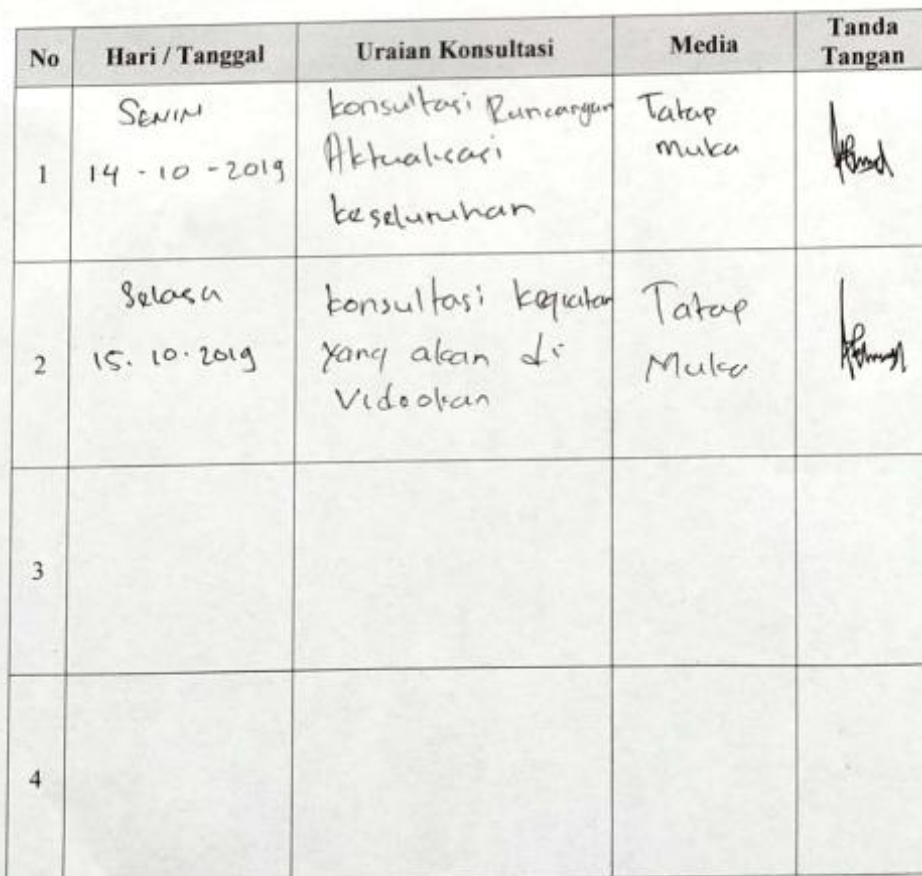 No Hari / Tanggal Uraian Konsultasi Media Tanda Tangan
1 Senin 14 - 10 - 2019 konsultasi Rancangan Aktualisasi keseluruhan Tatap muka
2 Selasa 15. 10. 2019 konsultasi kegiatan yang akan di Videokan Tatap Muka
3
4